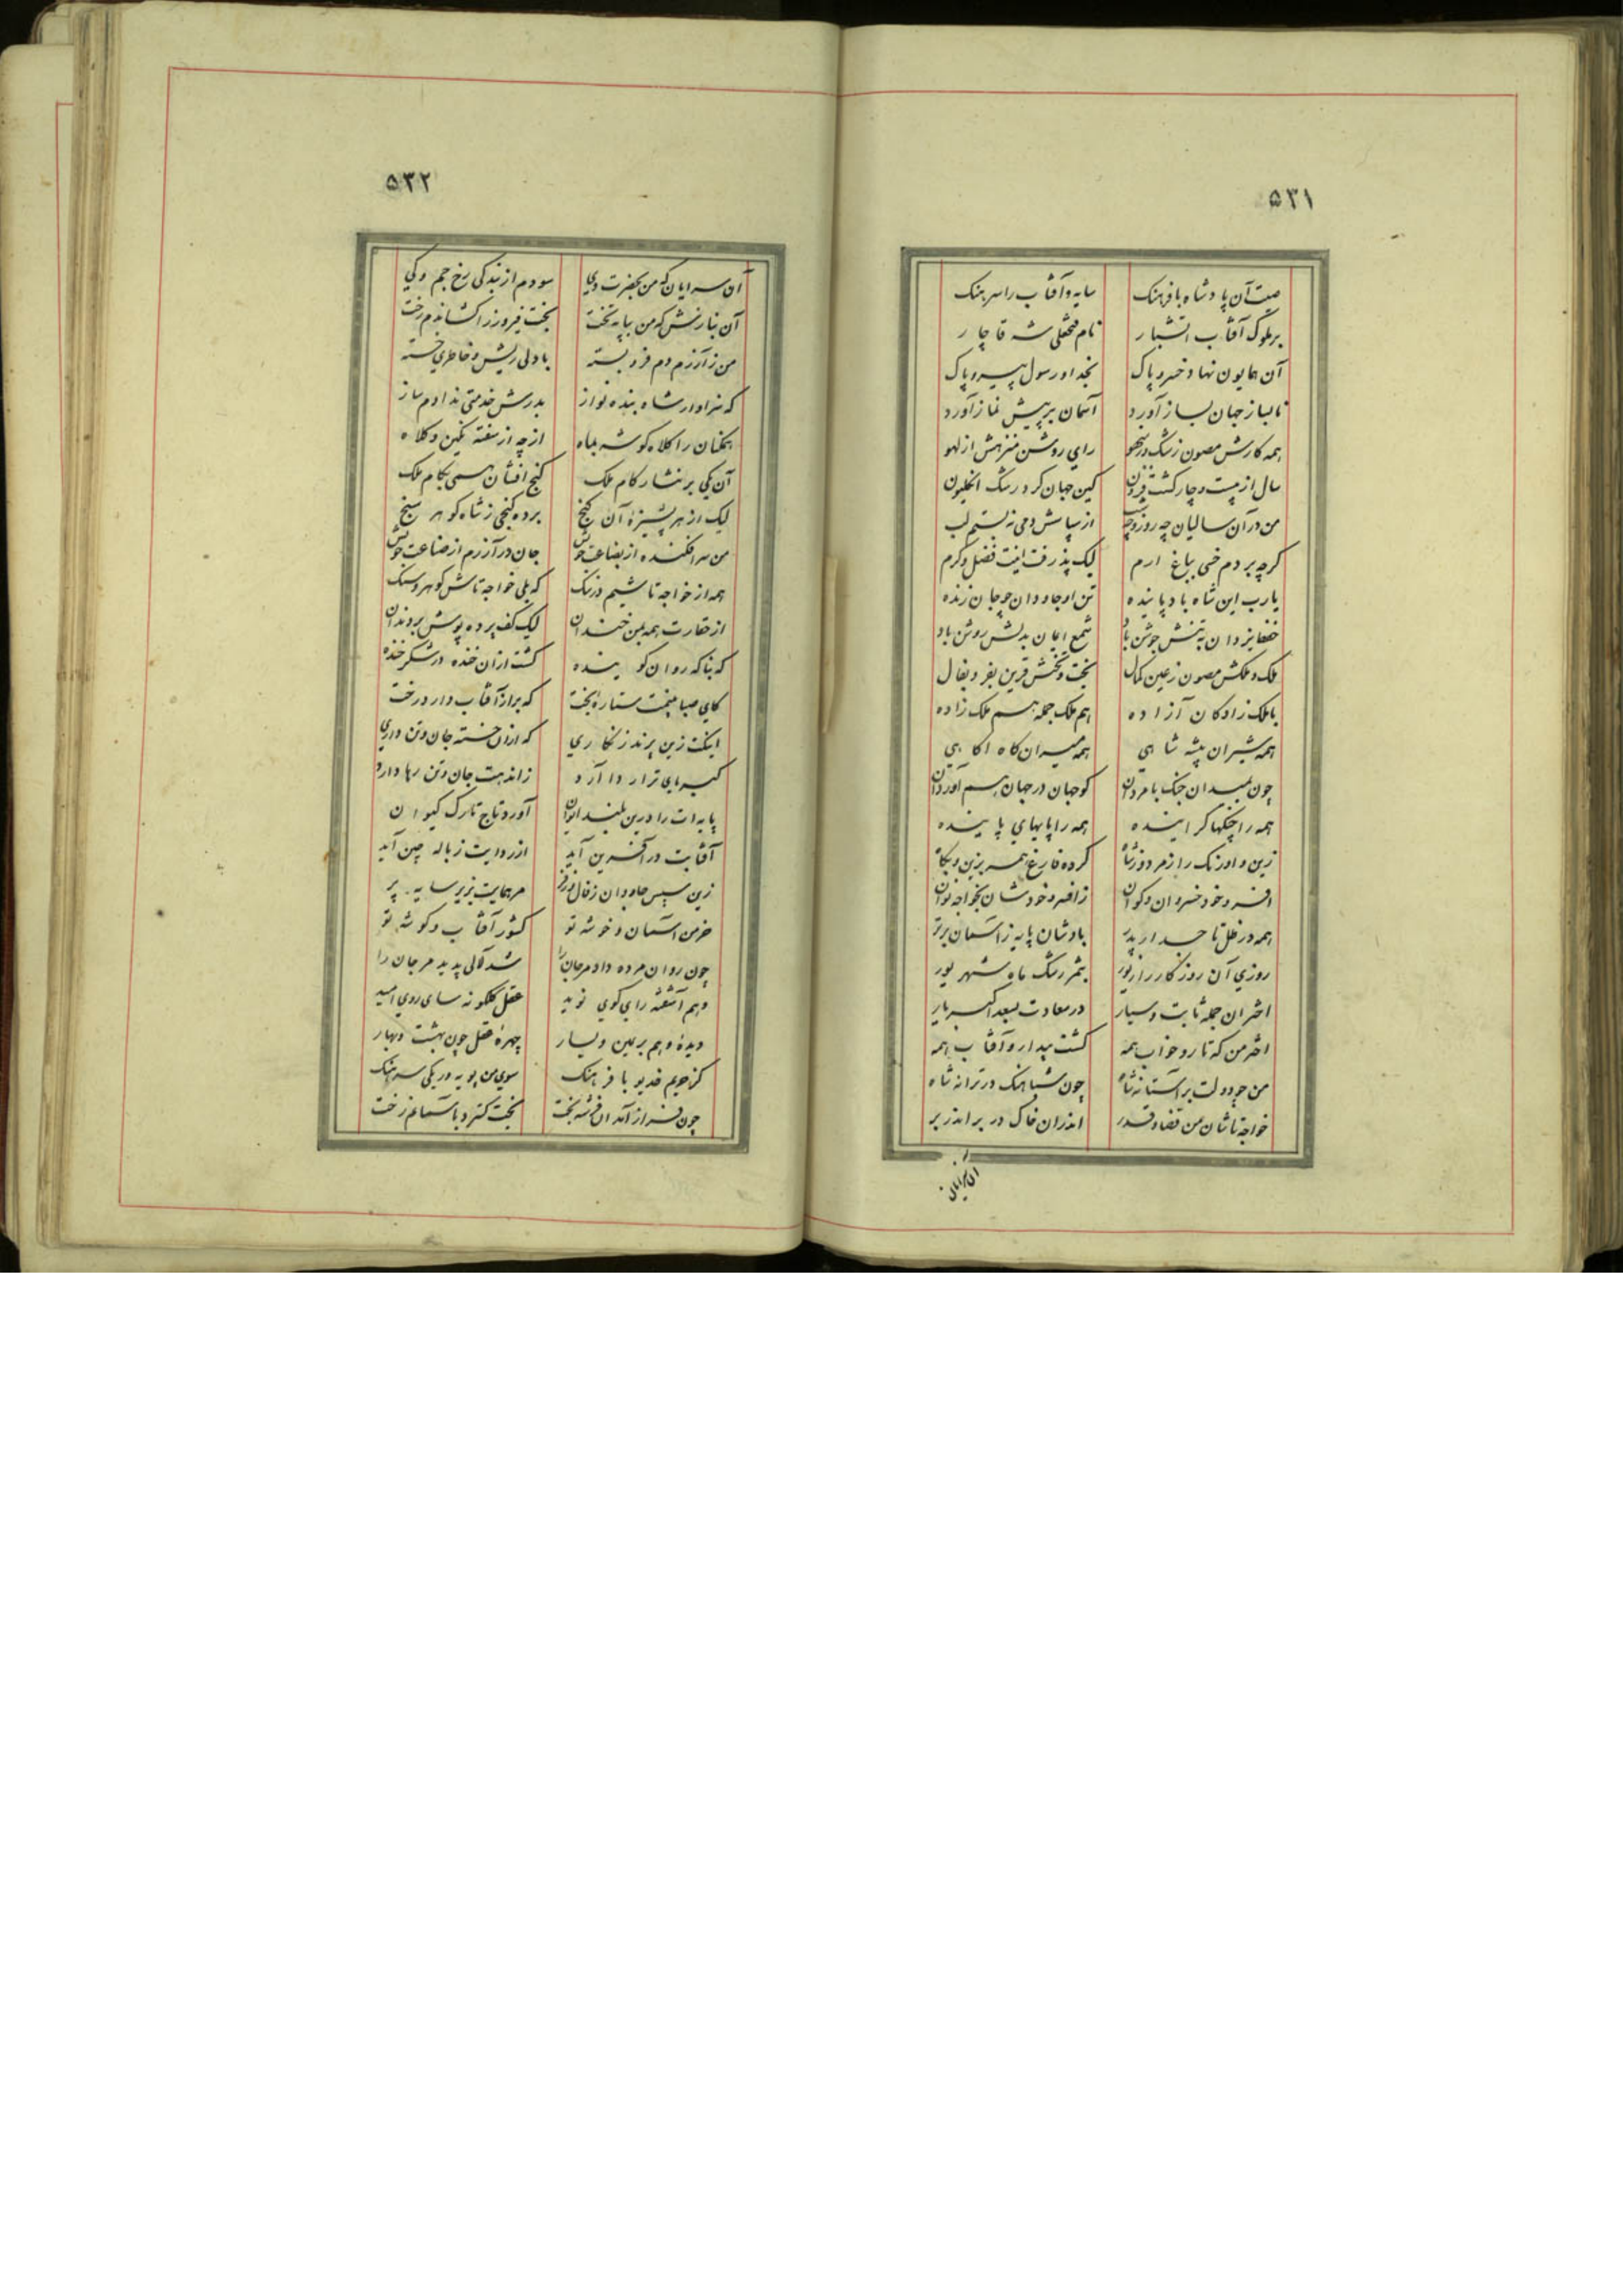 ۵۳۱
صیت آن پادشاه بافرهنک سایه وآفتاب راسرهنک
برملوک آفتاب اشتبار نام فتحعلی شه قاچار
آن همایون نهاد خسرو پاک بخدا و رسول پیرو پاک
تالباز جهان بساز آورد آسمان برپیش نماز آورد
همه کارش مصون زشک وزسهو رای روشن منزهش از لهو
سال از بیست و چار کشت فزون کین جهان کرد رشک انکلیون
من در آن سالیان چه روز و چه شب از سپاسش دمی نبستم لب
کرچه بردم خسی بباغ ارم لیک پذرفت اینت فضل و کرم
یارب این شاه باد پاینده تن او جاودان چو جان زنده
حفظ یزدان بتنش جوشن باد شمع ایمان بدلش روشن باد
ملک و ملکش مصون زعین کمال بخت و تختش قرین بفر و بفال
باملک زادکان آزاده هم ملک جمله هم ملک زاده
همه شیران بیشه شاهی همه میران کاه اکاهی
چون بمیدان جنک با مردان کو جهان در جهان هم آوردان
همه را چنکها کراینده همه را پایهای پاینده
زین و اورنک را زمردوزشاه کرده فارغ همه بزین و بکاه
افسر و خود خسروان و کوان زافسر و خودشان بخواجه نوان
همه در ظل تاجدار پدر بادشان پایه زآسمان برتر
روزی آن روز کارزار پور بثمر رشک ماه شهریور
اختران جمله ثابت و سیار در سعادت بسعد اکبر یار
اختر من که تار و خواب همه کشت بیدار و آفتاب همه
من چو دولت بر آستانه شاه چون شباهنک در ترانه شاه
خواجه تاشان من قضا و قدر اندران خاک در بر اندر بر
۵۳۲
آن سرایان که من بحضرت وی سودم از بندکی رخ جم و کی
آن نیازش که من بپایه تخت بخت فیروز را کشاندم رخت
من زآزرم دم فرو بسته بادلی ریش و خاطری خسته
که سزاوار شاه بنده نواز بدرش خدمتی ندادم ساز
همکنان را کلاه کوشه بماه ارچه از سفته نکین و کلاه
آن یکی بر نثار کام ملک کنج افشان همی بکام ملک
لیک از هر پشیزه آن کنج برده کنجی زشاه کوهر سنج
من سرافکنده از بضاعت خویش جان در آزرم از ضاعت خویش
همه از خواجه تاشیم در ننک که بلی خواجه تاش کوهر و سنک
از حقارت همه بمن خندان لیک کف پرده پوش بر دندان
که بناکه روان کوینده کشت ازان خنده در شکرخنده
کای صبا بینمت ستاره بخت که براز آفتاب دارد رخت
اینکت زین پرند زنکاری که ازان خسته جان و تن داری
کبریای ترا ردا آرد زاندهت جان و تن رها دارد
پایه ات را درین بلند ایوان آورد تاج تارک کیوان
آفتابت در آفرین آید از ردایت زباله چین آید
زین سپس جاودان زفال مر همایت بزیر سایه پر
خرمن آسمان و خوشه تو کشور آفتاب و کوشه تو
چون روان مرده داد مرجان را شد لآلی پدید مرجان را
وهم آشفته رای کوی نوید عقل کلکونه سای روی امید
دیده وهم بر یمین و یسار چهره عقل چون بهشت و بهار
کز حریم خدیو با فرهنک سوی من پویه ور یکی سرهنک
چون فراز آمد ان فرشته بخت بخت کسترد باسمانم رخت